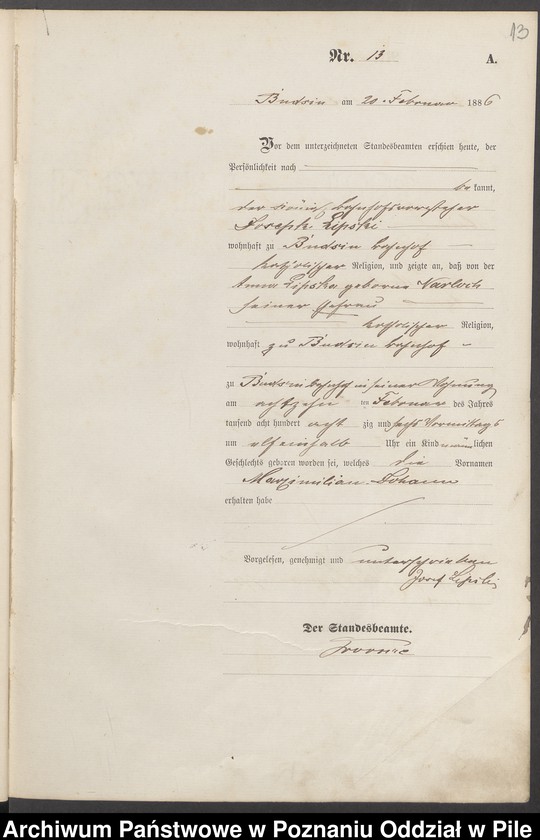 13
Nr. 13 A.
Budsin am 20. Februar 1886
Vor dem unterzeichneten Standesbeamten erschien heute, der
Persönlichkeit nach
be kannt,
der Bahnhofsvorsteher
Joseph Lipski
wohnhaft zu Budsin Bahnhof
katholischer Religion, und zeigte an, daß von der
Anna Lipska geborene Warloch
seiner Ehefrau
katholischer Religion,
wohnhaft zu Budsin Bahnhof
zu Budsin Bahnhof in seiner Wohnung
am achtzehn ten Februar des Jahres
tausend acht hundert acht zig und sechs Vormittags
um elf einhalb Uhr ein Kind männlichen
Geschlechts geboren worden sei, welches die Vornamen
Maximilian Johann
erhalten habe
Vorgelesen, genehmigt und unterschrieben
Josef Lipski
Der Standesbeamte.
Archiwum Państwowe w Poznaniu Oddział w Pile